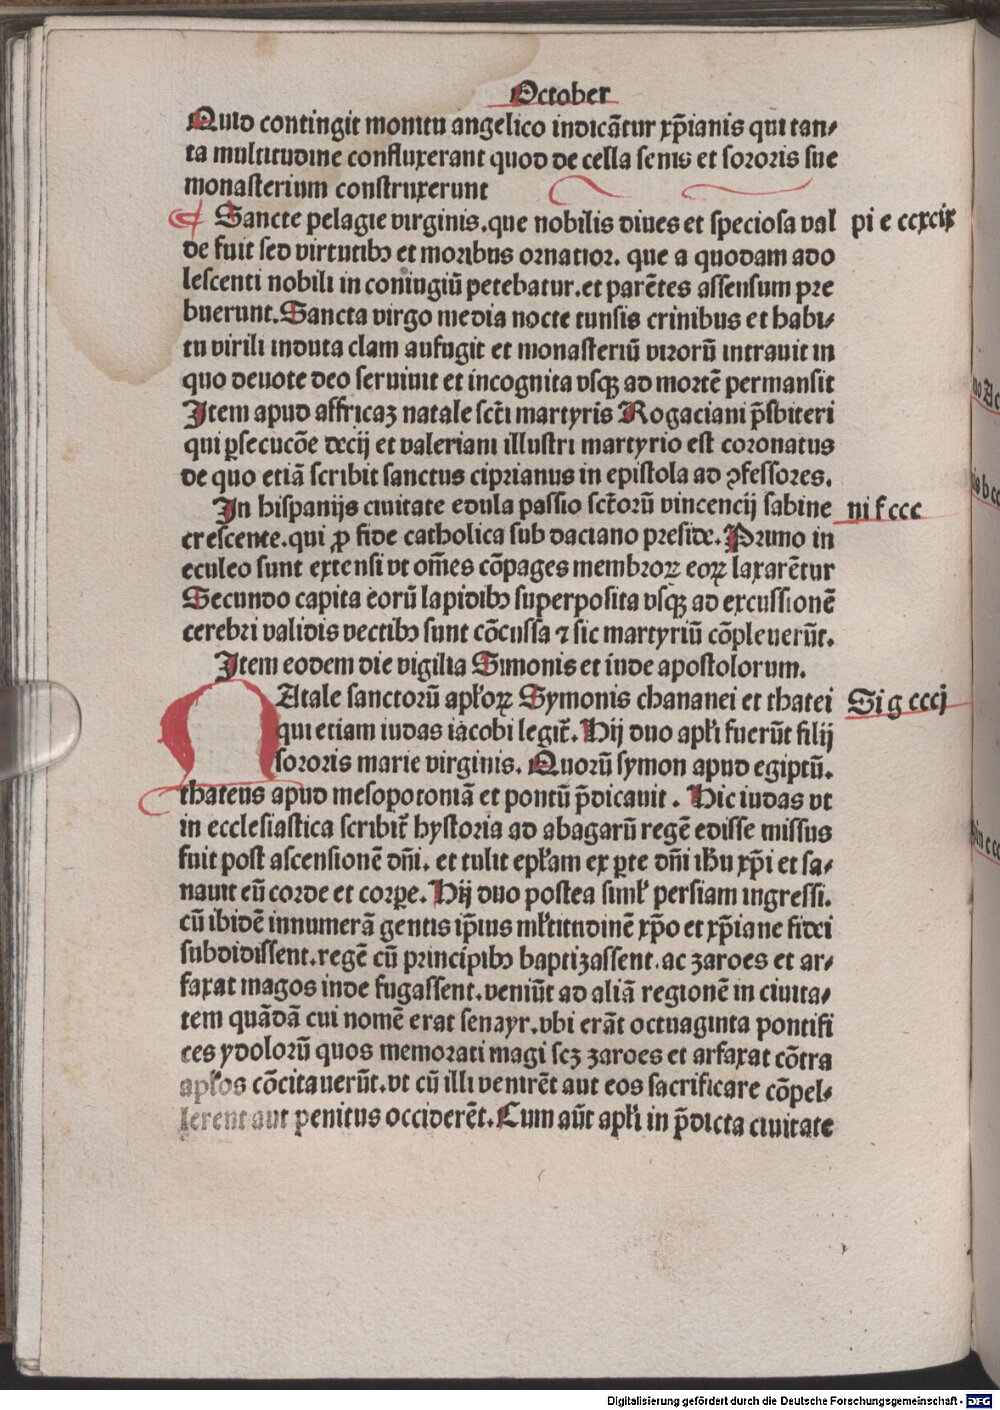 October
Quid contingit monitu angelico indicãtur xp̃ianis qui tan⸗
ta multitudine confluxerant quod de cella senis et sororis sue
monasterium construxerunt
Sancte pelagie virginis.que nobilis diues et speciosa val pi e ccxcix
de fuit sed virtutibꝫ et moribus ornatior. que a quodam ado
lescenti nobili in coniugiũ petebatur.et parẽtes assensum pre
buerunt.Sancta virgo media nocte tunsis crinibus et habi⸗
tu virili induta clam aufugit et monasteriũ virorũ intrauit in
quo deuote deo seruiuit et incognita vsqꝫ ad mortẽ permansit
Item apud affricaꝫ natale sct̃i martyris Rogaciani p̃sbiteri
qui ꝑsecucõe decij et valeriani illustri martyrio est coronatus
de quo etiã scribit sanctus ciprianus in epistola ad ꝯfessores.
In hispanijs ciuitate edula passio sct̃orũ vincencij sabine ni f ccc
crescente.qui ꝓ fide catholica sub daciano preside.Primo in
eculeo sunt extensi vt om̃es cõpages membroꝝ eoꝝ laxarẽtur
Secundo capita eorũ lapidibꝫ superposita vsqꝫ ad excussionẽ
cerebri validis vectibꝫ sunt cõcussa ⁊ sic martyriũ cõpleuerũt.
Item eodem die vigilia Simonis et iude apostolorum.
NAtale sanctorũ apłoꝝ Symonis chananei et thatei Si g cccj
qui etiam iudas iacobi legit᷑. Hij duo apłi fuerũt filij
sororis marie virginis. Quorũ symon apud egiptũ.
thateus apud mesopotomiã et pontũ p̃dicauit . Hic iudas vt
in ecclesiastica scribit᷑ hystoria ad abagarũ regẽ edisse missus
fuit post ascensionẽ dñi. et tulit epłam ex ꝑte dñi ihu xp̃i et sa⸗
nauit eũ corde et corꝑe. Hij duo postea simł persiam ingressi.
cũ ibidẽ innumerã gentis ip̃ius młtitudinẽ xp̃o et xp̃iane fidei
subdidissent.regẽ cũ principibꝫ baptizassent.ac zaroes et ar⸗
faxat magos inde fugassent.veniũt ad aliã regionẽ in ciuita⸗
tem quãdã cui nomẽ erat senayr.vbi erãt octuaginta pontifi
ces ydolorũ quos memorati magi scꝫ zaroes et arfaxat cõtra
apłos cõcitauerũt.vt cũ illi venirẽt aut eos sacrificare cõpel⸗
lerent aut penitus occiderẽt. Cum aũt apłi in p̃dicta ciuitate
Digitalisierung gefördert durch die Deutsche Forschungsgemeinschaft - DFG